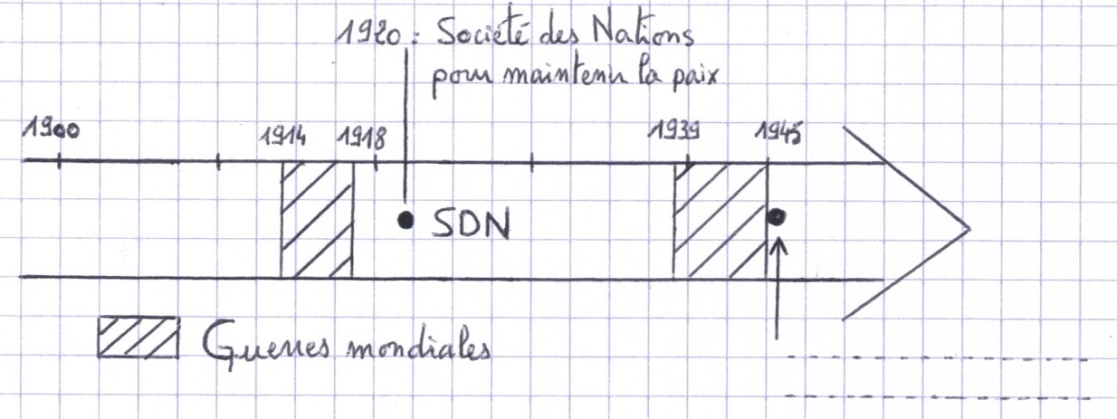 1920 : Société des Nations
pour maintenir la paix
1900 1914 1918 1939 1945
SDN
Guerres mondiales